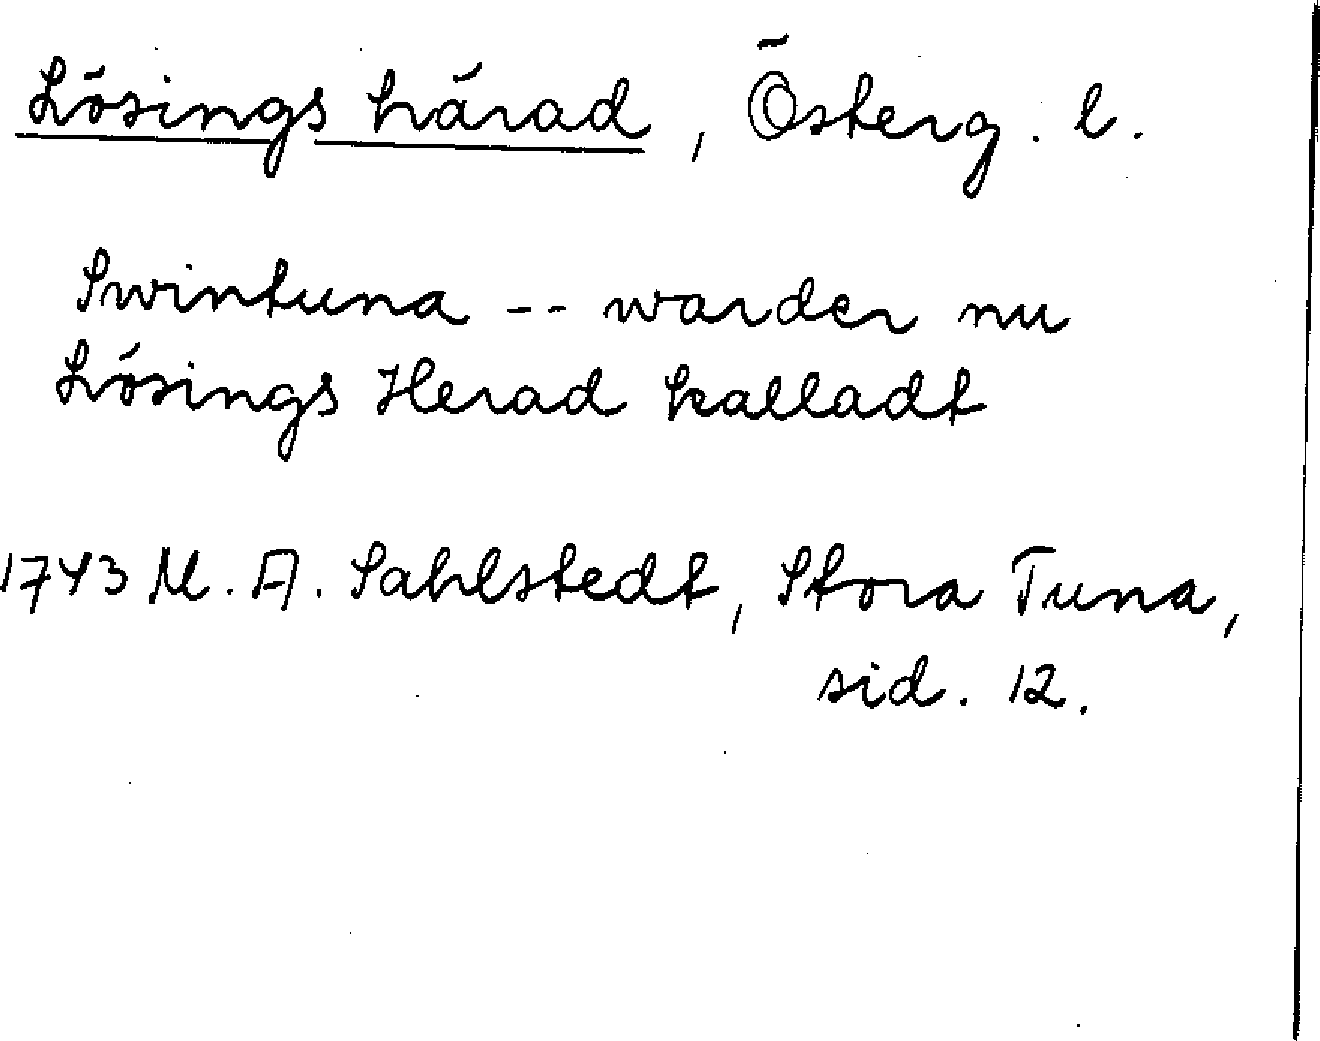 Lösings härad, Österg. l.
Swintuna -- warder nu
Lösings Herad kalladt
1743 M. A. Sahlstedt, Stora Tuna,
sid. 12.